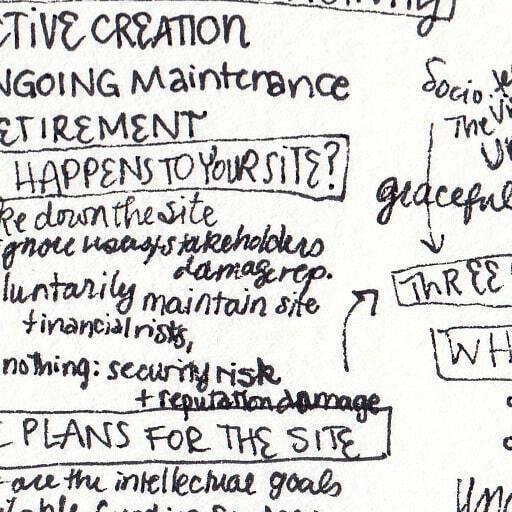 CTIVE CREATION
NGOING Maintenance
ETIREMENT
HAPPENS TO YOUR SITE?
ke down the site
gnore users/stakeholders
damage rep.
luntarily maintain site
financial risks,
nothing: security risk
+ reputation damage
PLANS FOR THE SITE
are the intellectual goals
Socio
The
graceful
THREE
WH